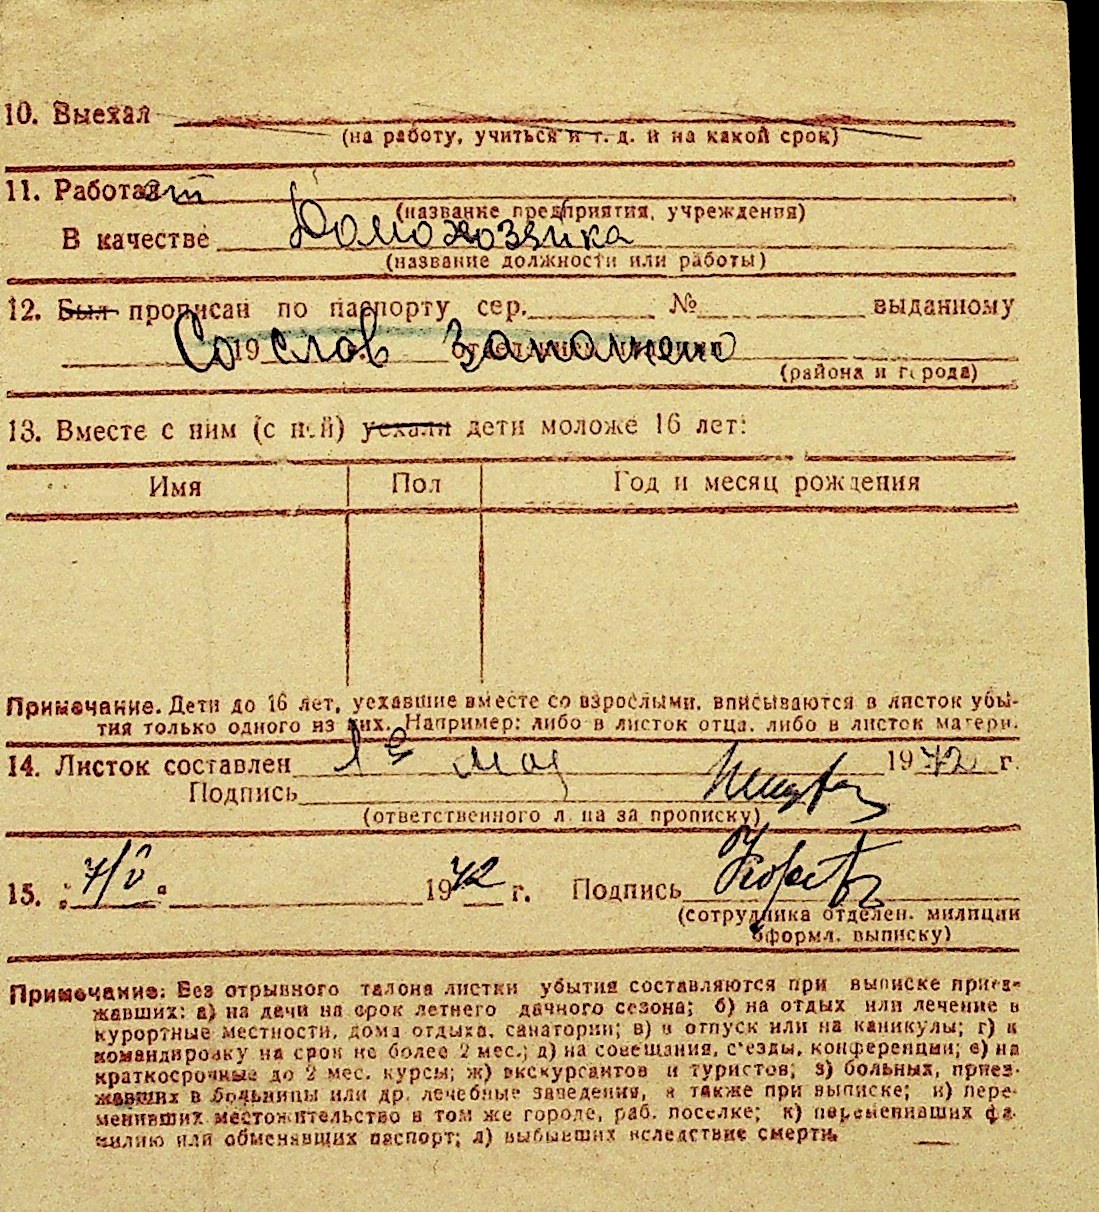 10. Выехал
(на работу, учиться и т. д. и на какой срок)
11. Работает
(название предприятия, учреждения)
В качестве Домохозяйка
(название должности или работы)
12. Был прописан по паспорту сер. № выданному
19 Со слов заполнено
(района и города)
13. Вместе с ним (с ней) уехали дети моложе 16 лет:
Имя Пол Год и месяц рождения
Примечание. Дети до 16 лет, уехавшие вместе со взрослыми, вписываются в листок убы-
тия только одного из них. Например: либо в листок отца, либо в листок матери.
14. Листок составлен 1е мая 1972 г.
Подпись
(ответственного л на за прописку)
15. " 7/V " 1972 г. Подпись
(сотрудника отделен. милиции
оформл. выписку)
Примечание: Без отрывного талона листки убытия составляются при выписке приез-
жавших: а) на дачи на срок летнего дачного сезона; б) на отдых или лечение в
курортные местности, дома отдыха, санатории; в) в отпуск или на каникулы; г) в
командировку на срок не более 2 мес.; д) на совещания, с'езды, конференции; е) на
краткосрочные до 2 мес. курсы; ж) экскурсантов и туристов; з) больных, приез-
жавших в больницы или др. лечебные заведения, а также при выписке; и) пере-
менивших местожительство в том же городе, раб. поселке; к) переменивших фа-
милию или обменявших паспорт; л) выбывших вследствие смерти.